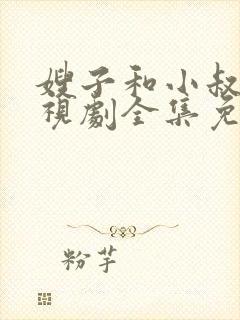 嫂子和小叔
視劇全集免
粉芋